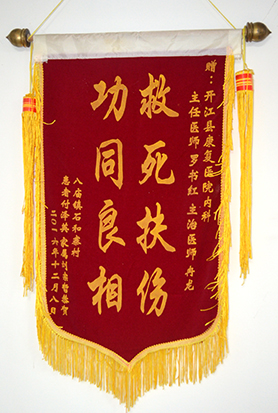 赠：开江县康复医院内科
主任医师 罗书红 主治医师 冉龙
救死扶伤
功同良相
八庙镇石和寨村
患者付泽英 家属
二〇一六年十二月八日